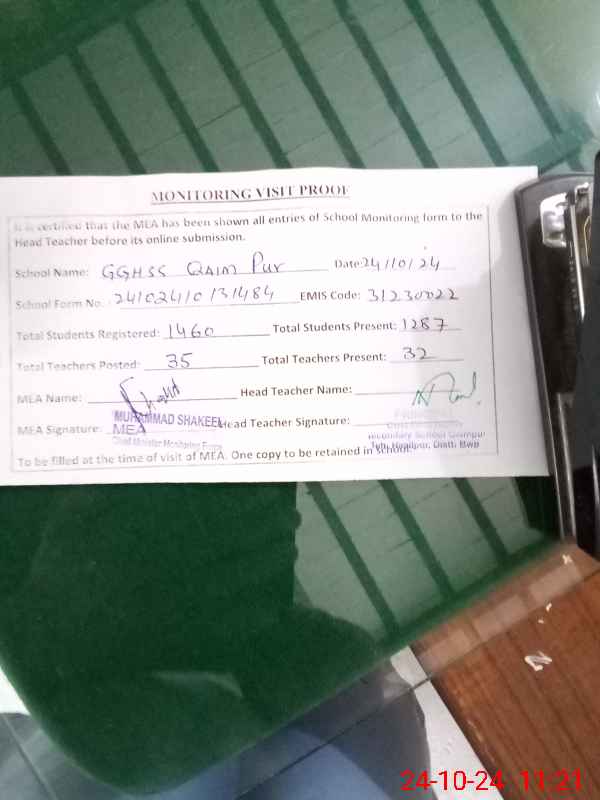 MONITORING VISIT PROOF
It is certified that the MEA has been shown all entries of School Monitoring form to the
Head Teacher before its online submission.
School Name: GGHSS QAIM PUR Date: 24/10/24
School Form No. : 24102410131484 EMIS Code: 31230022
Total Students Registered: 1460 Total Students Present: 1287
Total Teachers Posted: 35 Total Teachers Present: 32
MEA Name: Head Teacher Name:
MUHAMMAD SHAKEEL
MEA Signature: MEA Head Teacher Signature:
Chief Minister Monitoring Force
PRINCIPAL
Secondary School Qaimpur
Teh. Hasilpur, Distt. Bwp
To be filled at the time of visit of MEA. One copy to be retained in school.
24-10-24 11:21